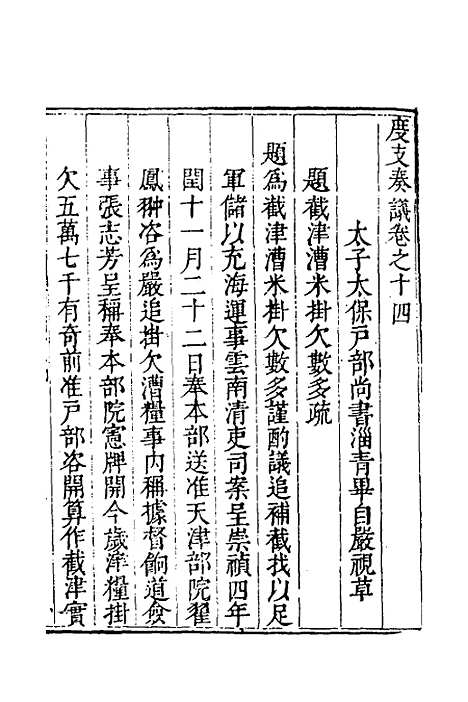 度支奏議卷之十四
太子太保戶部尚書淄青畢自嚴視草
題截津漕米掛欠數多疏
題爲截津漕米掛欠數多謹酌議追補截找以足
軍儲以充海運事雲南清吏司案呈崇禎四年
閏十一月二十二日奉本部送准天津部院翟
鳳翀咨爲嚴追掛欠漕糧事內稱據督餉道僉
事張志芳呈稱奉本部院憲牌開今歲津糧掛
欠五萬七千有奇前准戶部咨開算作截津實